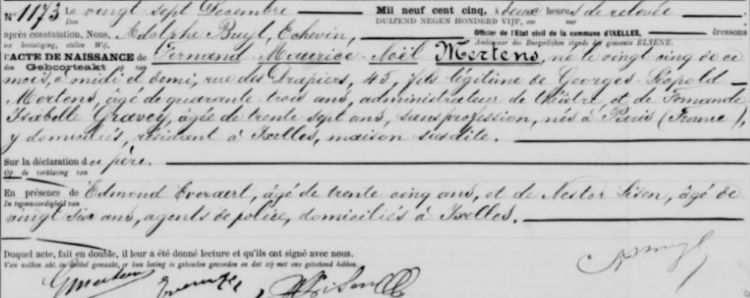 N° 1173 Le vingt sept Décembre Mil neuf cent cinq, à deux heures de relevée
Den DUIZEND NEGEN HONDERD VIJF, om ten ure
après constatation. Nous, Adolphe Buyl, Echevin, Officier de l'Etat civil de la commune d'IXELLES, dressons
na bestatiging, stellen Wij, Ambtenaar des Burgerlijken stands der gemeente ELSENE.
l'ACTE DE NAISSANCE de Fernand Maurice Noël Mertens, né le vingt cinq de ce
den Geboorteakt of van
mois, à midi et demi, rue des Drapiers, 45, fils légitime de Georges Léopold
Mertens, âgé de quarante trois ans, administrateur de théâtre, et de Fernande
Isabelle Gravey, âgée de trente sept ans, sans profession, nés à Paris (France),
y domiciliés, résidant à Ixelles, maison susdite.
Sur la déclaration du père.
Op de verklaring van
En présence de Edmond Everaert, âgé de trente cinq ans, et de Nestor Sisen, âgé de
In tegenwoordigheid van
vingt six ans, agents de police, domiciliés à Ixelles.
Duquel acte, fait en double, il leur a été donné lecture et qu'ils ont signé avec nous.
Van welken akt, in dubbel gemaakt, er hun lezing is gehouden geworden en dat zij met ons geteekend hebben.
GMertens